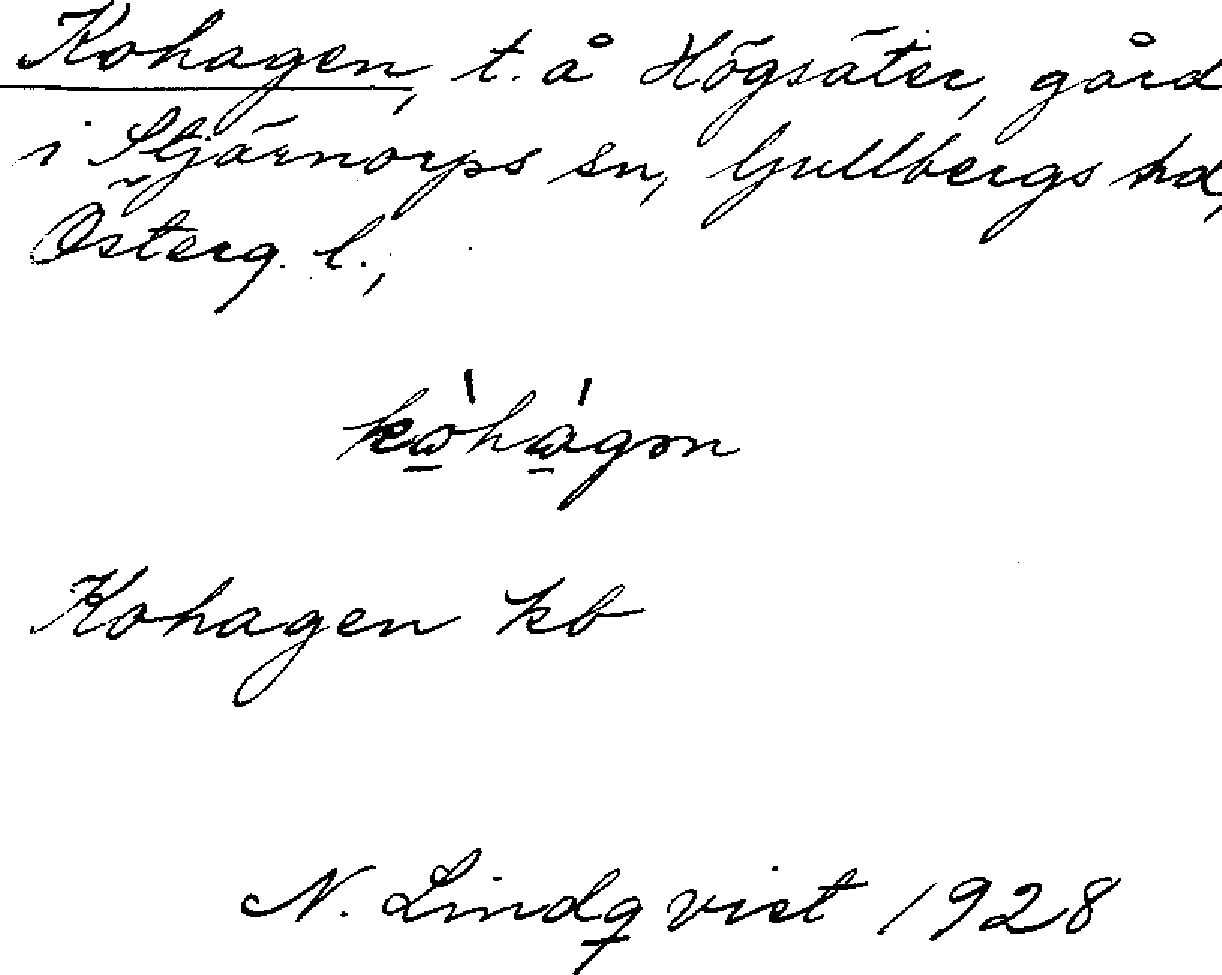 Kohagen, t. å Högsäter, gård
i Stjärnorps sn, Gullbergs hd,
Österg. l.,
Kohagen kb
N. Lindqvist 1928